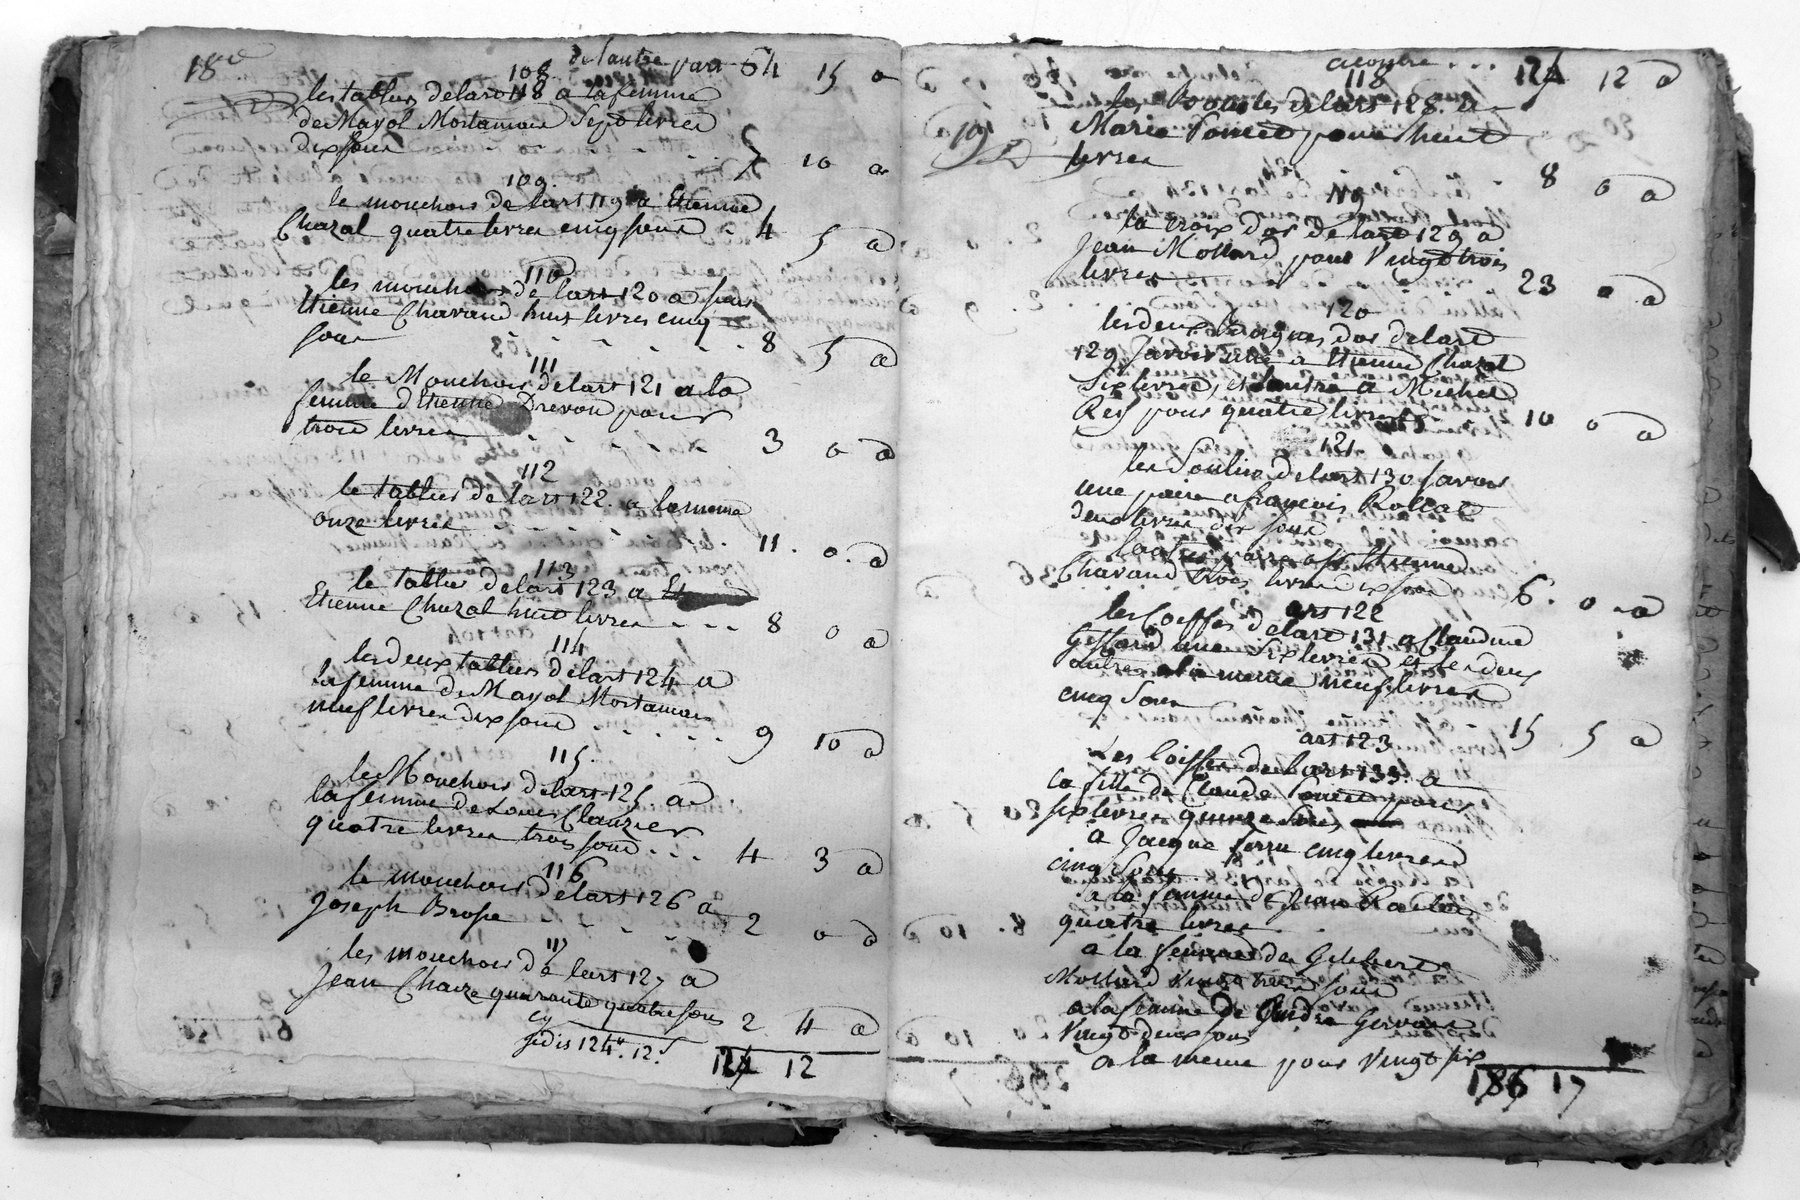 18e
de lautre part 64 15 a
108
les tablier delart 118 a la femme
de Mayol Mortamais Sept livres
dix sous 7 10 a
109.
le mouchoir de lart 119 a Etienne
Chazal quatre livres cinq sous 4 5 a
110
les mouchoirs de lart 120 a
Etienne Chavand huit livres cinq
sous 8 5 a
111
le Mouchoir de lart 121 a la
femme d'Etienne Drevon pour
trois livres 3 0 a
112
le tablier de lart 122. a la meme
onze livres 11. 0. a
113
le tablier de lart 123 a
Etienne Chazal huit livres 8 0 a
114
les deux tablier de lart 124 a
la femme de Mayol Mortamais
neuf livres dix sous 9 10 a
115.
le Mouchoir de lart 125 a
la femme de Louis Clauzier
quatre livres trois sous 4 3 a
116
le mouchoir de lart 126 a
Joseph Brosse 2 0 a
117
les mouchoir de lart 127 a
Jean Chaize quarante quatre sous 2 4 a
cy
je dis 124# 12s
124 12
124 12 a
118
les Boucles de lart 128. a
Marie Poncet pour huit
livres 8 0 a
19e
119
la croix d'or de lart 129 a
Jean Mollard pour Vingt trois
livres 23 0 a
120
les deux d'or de lart
129 Savoir une a Etienne Chazal
Six livres, et lautre a Michel
Rey pour quatre livres 10 0 a
121
les Soulier de lart 130 Savoir
une paire a françois Rollat
deux livres dix sous
lautre paire a Etienne
Chavand trois livres dix sous 6. 0 a
art 122
les Coeffes de lart 131 a Claudine
Giffard une six livres et les deux
autres a la meme neuf livres
cinq Sous 15 5 a
art 123
Les Coiffes de lart 133 a
la fille de Claude Poncet pour
six livres quinze Sous
a Jacque Serre cinq livres
cinq Sous
a la femme de Jean
quatre livres
a la femme de Gilibert
Mollard Vingt trois sous
a la femme de Andre Gervais
Vingt deux sous
a la meme pour Vingt six
186 17